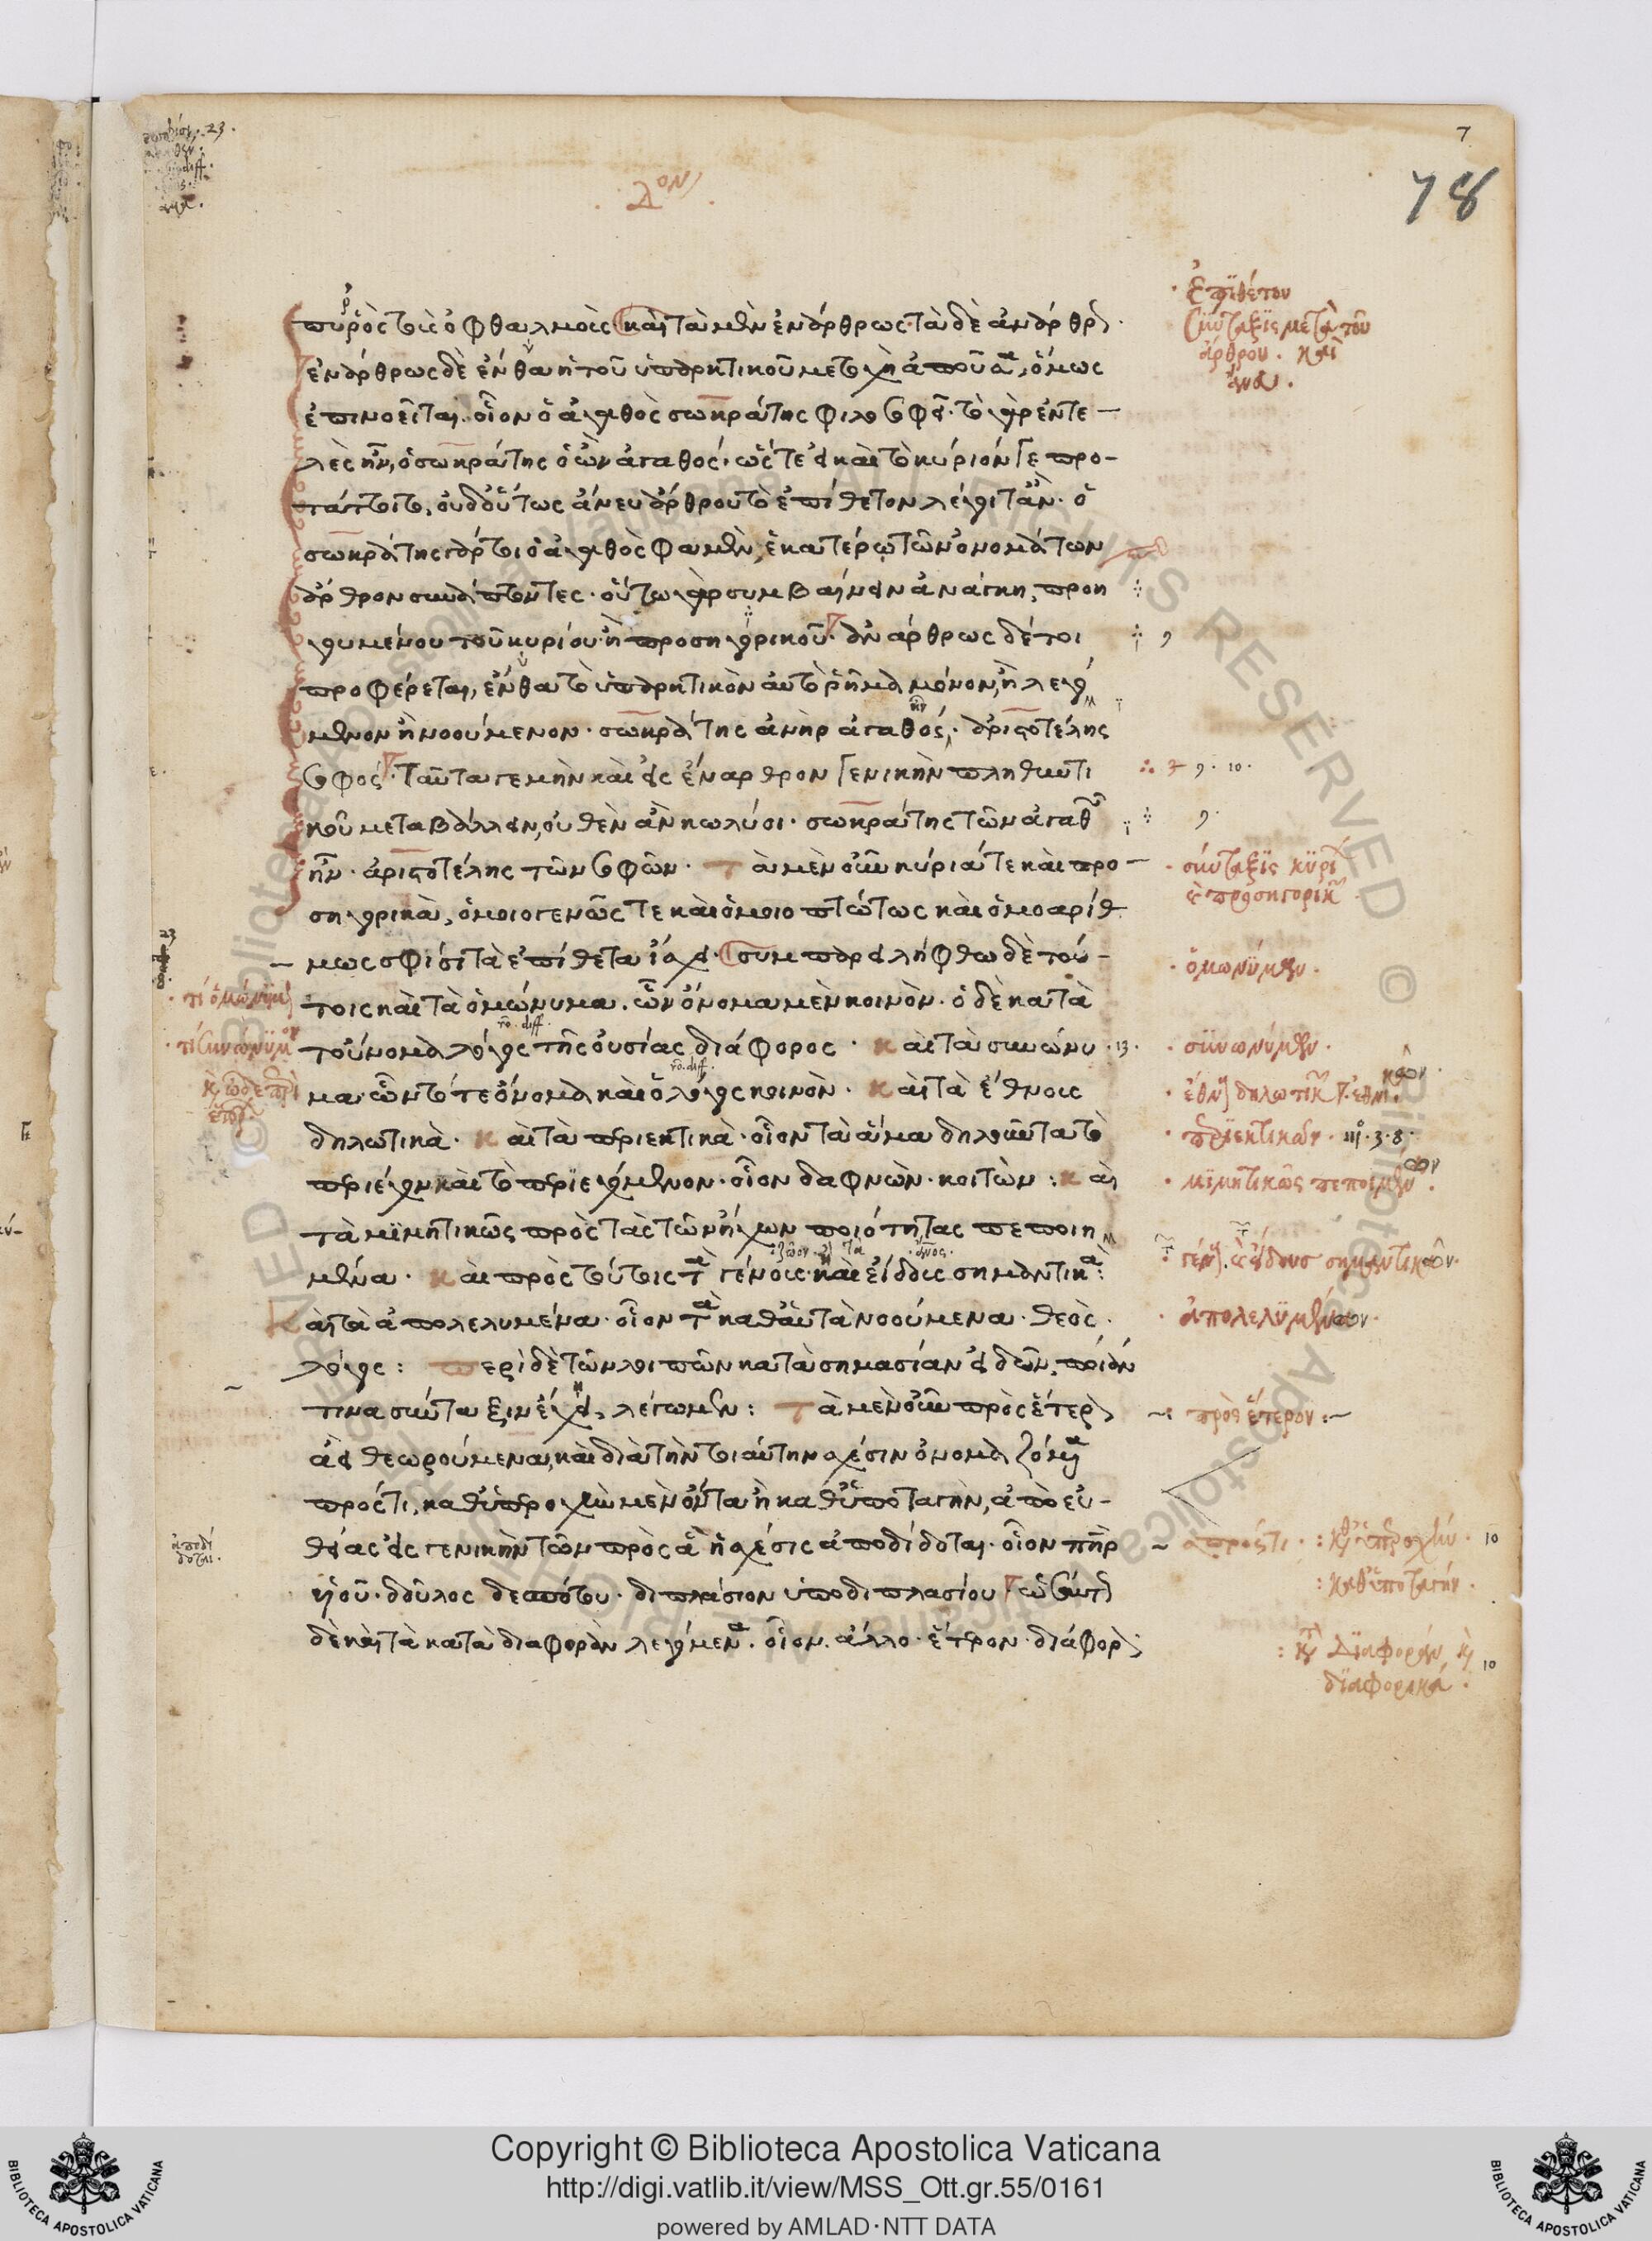 7
78
δον
Ἐπιθέτου
σύνταξις μετὰ τοῦ
ἄρθρου. καὶ
ἄνευ.
πυρρὸς τοῖς ὀφθαλμοῖς καὶ τὰ μὲν ἐνάρθρως· τὰ δὲ ἀνάρθρως·
ἐνάρθρως δὲ ἔνθα ἡ τοῦ ὑπαρκτικοῦ μετοχὴ ἀποῦσα, ὅμως
ἐπινοεῖται. οἷον ὁ ἀγαθὸς σωκράτης φιλοσοφεῖ· τὸ γὰρ ἐντε-
λὲς ἦν, ὁ σωκράτης ὁ ὢν ἀγαθός· ὥς τε εἰ καὶ τὸ κύριόν γε προ-
τάττοιτο, οὐδ' οὕτως ἄνευ ἄρθρου τὸ ἐπίθετον λέγοιτ' ἄν· ὁ
σωκράτης γάρ τοι ὁ ἀγαθὸς φαμὲν, ἑκατέρῳ τῶν ὀνομάτων
ἄρθρον συνάπτοντες· οὕτω γὰρ συμβαίνειν ἀνάγκη, προη
γουμένου τοῦ κυρίου· ἢ προσηγορικοῦ· ἀνάρθρως δέ τοι
προφέρεται, ἔνθα τὸ ὑπαρκτικὸν αὐτὸ ῥῆμα μόνον, ἢ λεγό
μενον ἢ νοούμενον· σωκράτης ἀνὴρ ἀγαθός· ἀριστοτέλης
σοφός· Ταῦτα γε μὴν καὶ εἰς ἔναρθρον γενικὴν πληθυντι
κοῦ μεταβάλλειν, οὐθὲν ἂν κωλύσοι· σωκράτης τῶν ἀγαθῶν
ἦν· ἀριστοτέλης τῶν σοφῶν· Τὰ μὲν οὖν κύριά τε καὶ προ-
σηγορικὰ, ὁμοιογενῶς τε καὶ ὁμοιοπτώτως καὶ ὁμοαρίθ
μως σφίσι τὰ ἐπίθετα ἴσχει· συμπαραλήφθω δὲ τού-
τοις καὶ τὰ ὁμώνυμα. ὧν ὄνομα μὲν κοινὸν· ὁ δὲ κατὰ
τοὔνομα λόγος τῆς οὐσίας διάφορος· Καὶ τὰ συνώνυ
μα· ὧν τό τε ὄνομα καὶ ὁ λόγος κοινὸν· Καὶ τὰ ἔθνους
δηλωτικὰ· Καὶ τὰ περιεκτικὰ· οἷον τὰ ἅμα δηλοῦντα τὸ
περιέχον καὶ τὸ περιεχόμενον· οἷον δαφνὼν· κοιτών: Καὶ
τὰ μιμητικῶς πρὸς τὰς τῶν ἤχων ποιότητας πεποιη
μένα· Καὶ πρὸς τούτοις τὰ γένους· καὶ εἴδους σημαντικά:
Καὶ τὰ ἀπολελυμένα· οἷον τὰ καθ' αὑτὰ νοούμενα· θεὸς·
λόγος: Περὶ δὲ τῶν λοιπῶν κατὰ σημασίαν εἰδῶν, ποίαν
τινα σύνταξιν ἔχει, λέγωμεν: Τὰ μὲν οὖν πρὸς ἕτερα
ἀεὶ θεωρούμενα, καὶ διὰ τὴν τοιαύτην σχέσιν ὀνομαζόμενα
πρός τι, καθ' ὑπεροχὴν μὲν ὄντα ἢ καθ' ὑποταγὴν, ἀπὸ εὐ-
θείας εἰς γενικὴν τῶν πρὸς ἃ ἡ σχέσις ἀποδίδοται· οἷον πατὴρ
υἱοῦ· δοῦλος δεσπότου· διπλάσιον ὑποδιπλασίου ὡσαύτως
δὲ καὶ τὰ κατὰ διαφορὰν λεγόμενα. οἷον. ἄλλο· ἕτερον· διάφορα·
σύνταξις κυρί
προσηγορικ
· ὁμωνύμων·
· τί ὁμώνυμα
· συνωνύμων·
· τί συνώνυμον
· ἐθν δηλωτικ
· περιεκτικῶν·
· μιμητικῶς πεποιημένων·
· γέν εἴδους σημαντικῶν·
· ἀπολελυμένων·
πρὸς ἕτερον:~
πρός τι· : καθ' ὑπεροχήν· 10
: καθ' ὑποταγήν·
: κατὰ διαφοράν, 10
διαφορικά·
ἀποδί
δοται·
Copyright © Biblioteca Apostolica Vaticana
http://digi.vatlib.it/view/MSS_Ott.gr.55/0161
powered by AMLAD·NTT DATA
BIBLIOTECA APOSTOLICA VATICANA
BIBLIOTECA APOSTOLICA VATICANA